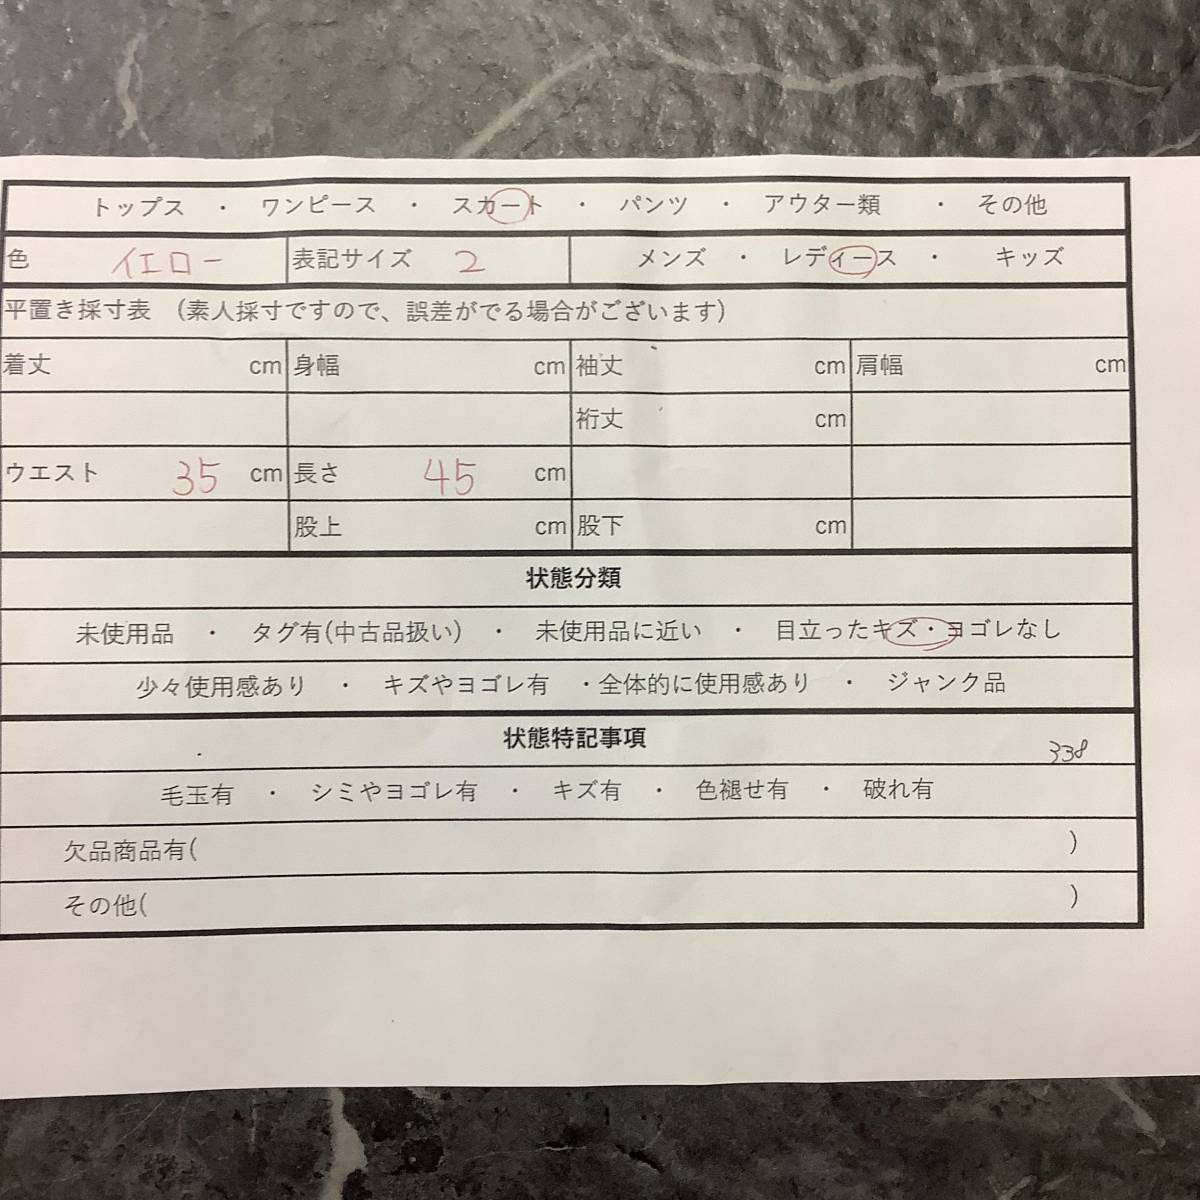 トップス ・ ワンピース ・ スカート ・ パンツ ・ アウター類 ・ その他
色 イエロー 表記サイズ 2 メンズ ・ レディース ・ キッズ
平置き採寸表 (素人採寸ですので、誤差がでる場合がございます)
着丈 cm 身幅 cm 袖丈 cm 肩幅 cm
裄丈 cm
ウエスト 35 cm 長さ 45 cm
股上 cm 股下 cm
状態分類
未使用品 ・ タグ有(中古品扱い) ・ 未使用品に近い ・ 目立ったキズ・ヨゴレなし
少々使用感あり ・ キズやヨゴレ有 ・全体的に使用感あり ・ ジャンク品
状態特記事項 338
毛玉有 ・ シミやヨゴレ有 ・ キズ有 ・ 色褪せ有 ・ 破れ有
欠品商品有( )
その他( )